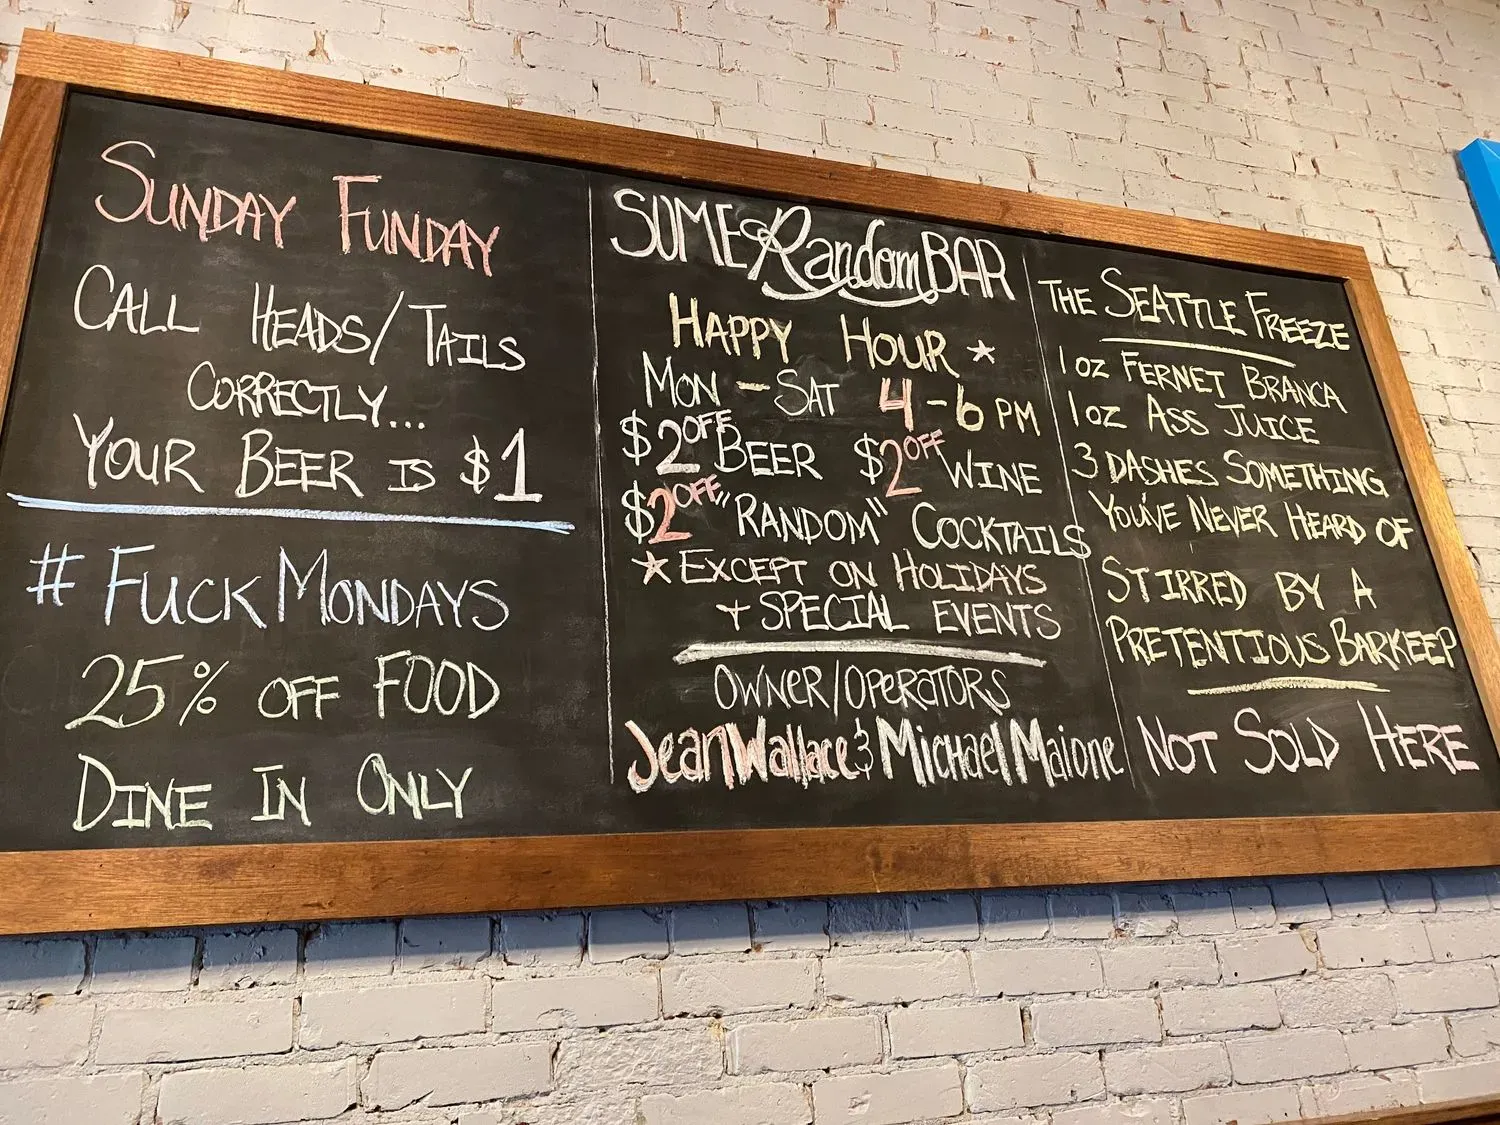 SUNDAY FUNDAY
CALL HEADS/TAILS
CORRECTLY...
YOUR BEER IS $1
#FUCKMONDAYS
25% OFF FOOD
DINE IN ONLY
SOME Random BAR
HAPPY HOUR ★
MON - SAT 4-6 PM
$2 OFF BEER $2 OFF WINE
$2 OFF "RANDOM" COCKTAILS
★ EXCEPT ON HOLIDAYS
+ SPECIAL EVENTS
OWNER/OPERATORS
Jean Wallace & Michael Maione
THE SEATTLE FREEZE
1 OZ FERNET BRANCA
1 OZ ASS JUICE
3 DASHES SOMETHING
YOU'VE NEVER HEARD OF
STIRRED BY A
PRETENTIOUS BARKEEP
NOT SOLD HERE